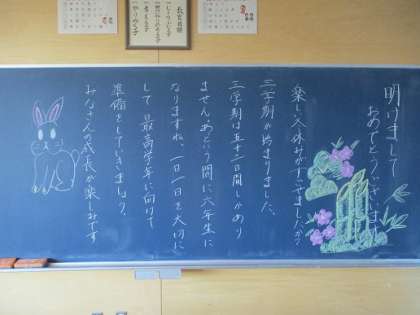 明けまして
おめでとうございます
楽しい休みがすごせましたか？
三学期が始まりました。
三学期は五十二日間しかあり
ません。あっという間に六年生に
なりますね。一日一日を大切に
して最高学年に向けて
準備をしていきましょう。
みなさんの成長が楽しみです
教育目標